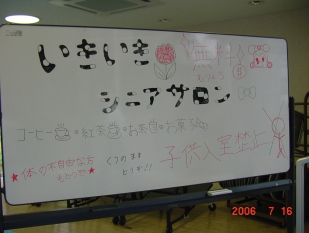 いきいき
無料
もちろん
シニアサロン
コーヒー・紅茶・お茶・お菓子
子供入室禁止
★体の不自由な方も
くるま
2006 7 16